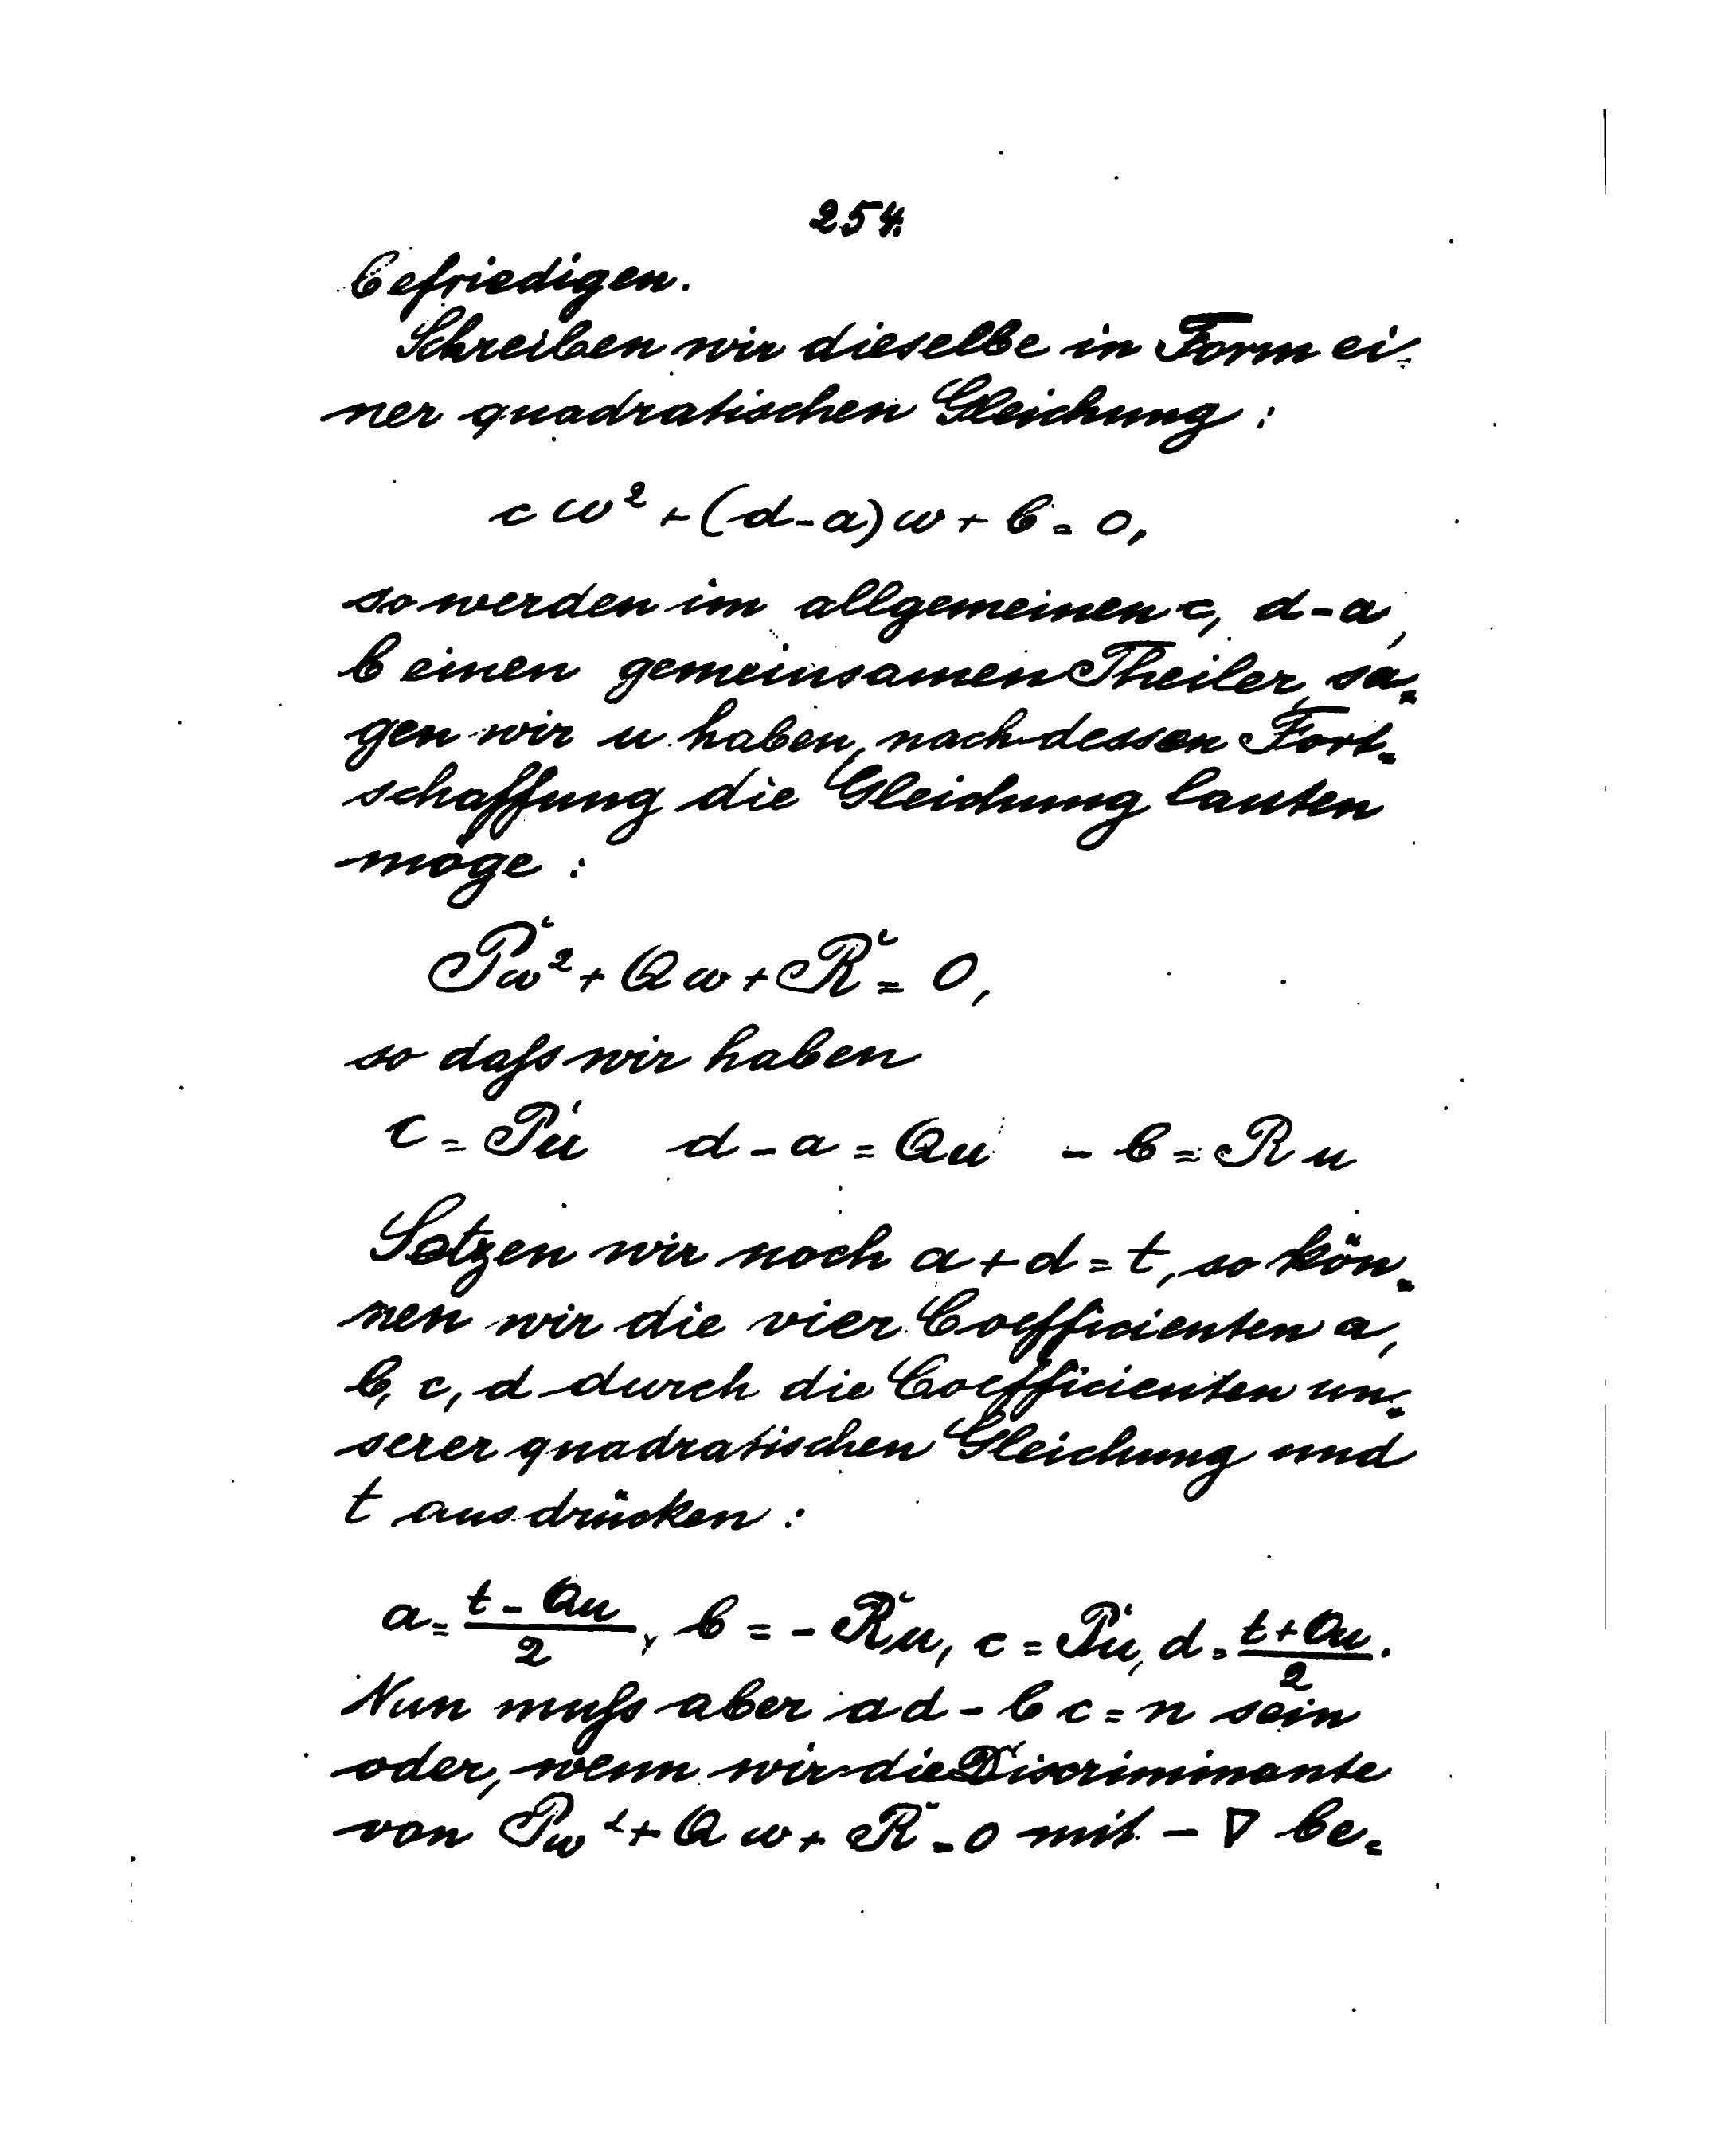 254.
befriedigen.
Schreiben wir dieselbe in Form ei-
ner quadratischen Gleichung:
c ω² + (d - a) ω + b = 0,
so werden im allgemeinen c, d - a,
b einen gemeinsamen Theiler, sa-
gen wir u haben, nach dessen Fort-
schaffung die Gleichung lauten
möge:
Pω² + Qω + R = 0,
so daſs wir haben
c = Pu d - a = Qu - b = Ru
Setzen wir noch a + d = t, so kön-
nen wir die vier Coefficienten a,
b, c, d durch die Coefficienten un-
serer quadratischen Gleichung und
t ausdrücken:
a = (t - Qu)/2, b = - Ru, c = Pu, d = (t + Qu)/2.
Nun muſs aber ad - bc = n sein
oder, wenn wir die Discriminante
von Pω² + Qω + R = 0 mit - ∇ be-